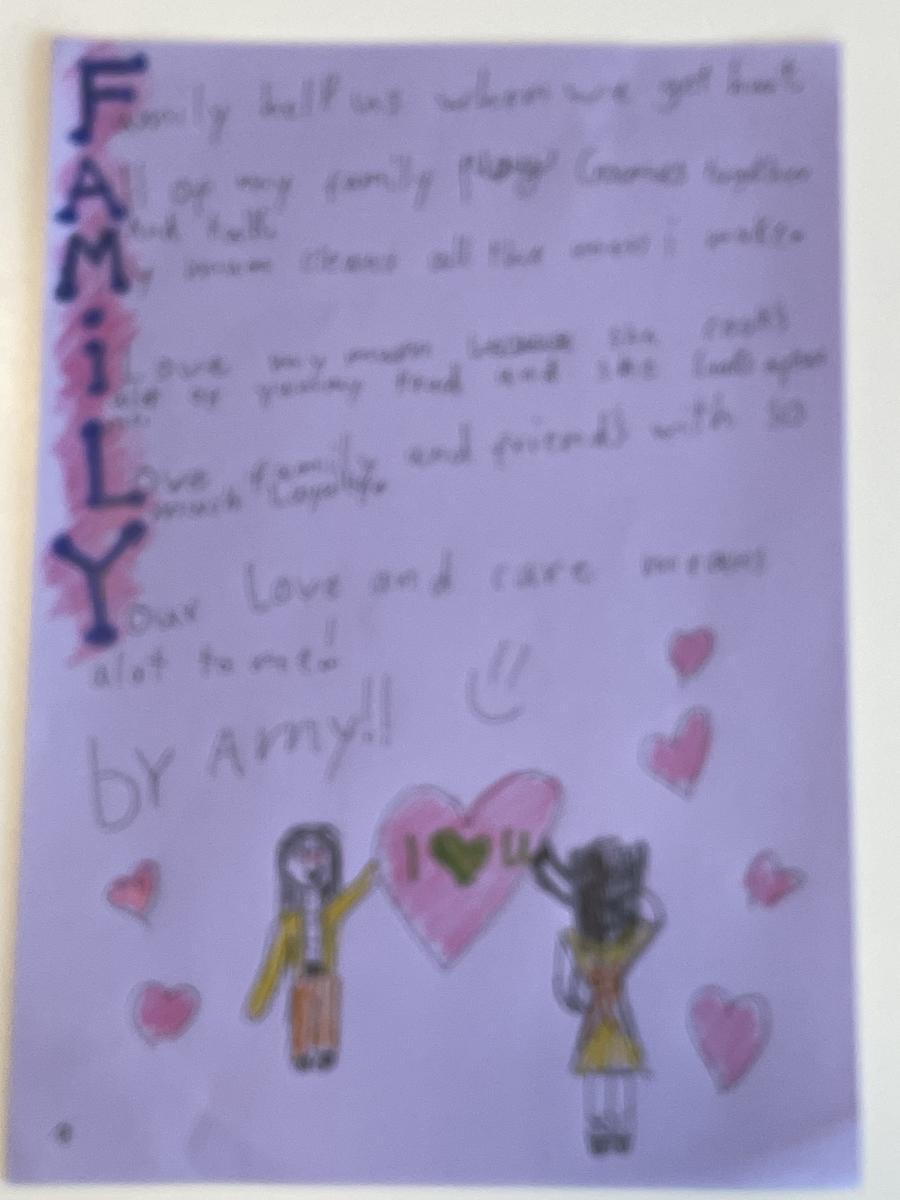 Family help us when we get hurt
All of my family plays Games together
And talk
My mum cleans all the mess i make.
i Love my mum because she cooks
of yummy food and she looks after
me.
Love family and friends with so
much Loyalty.
Your Love and care means
alot to me!
by Amy!!
I U